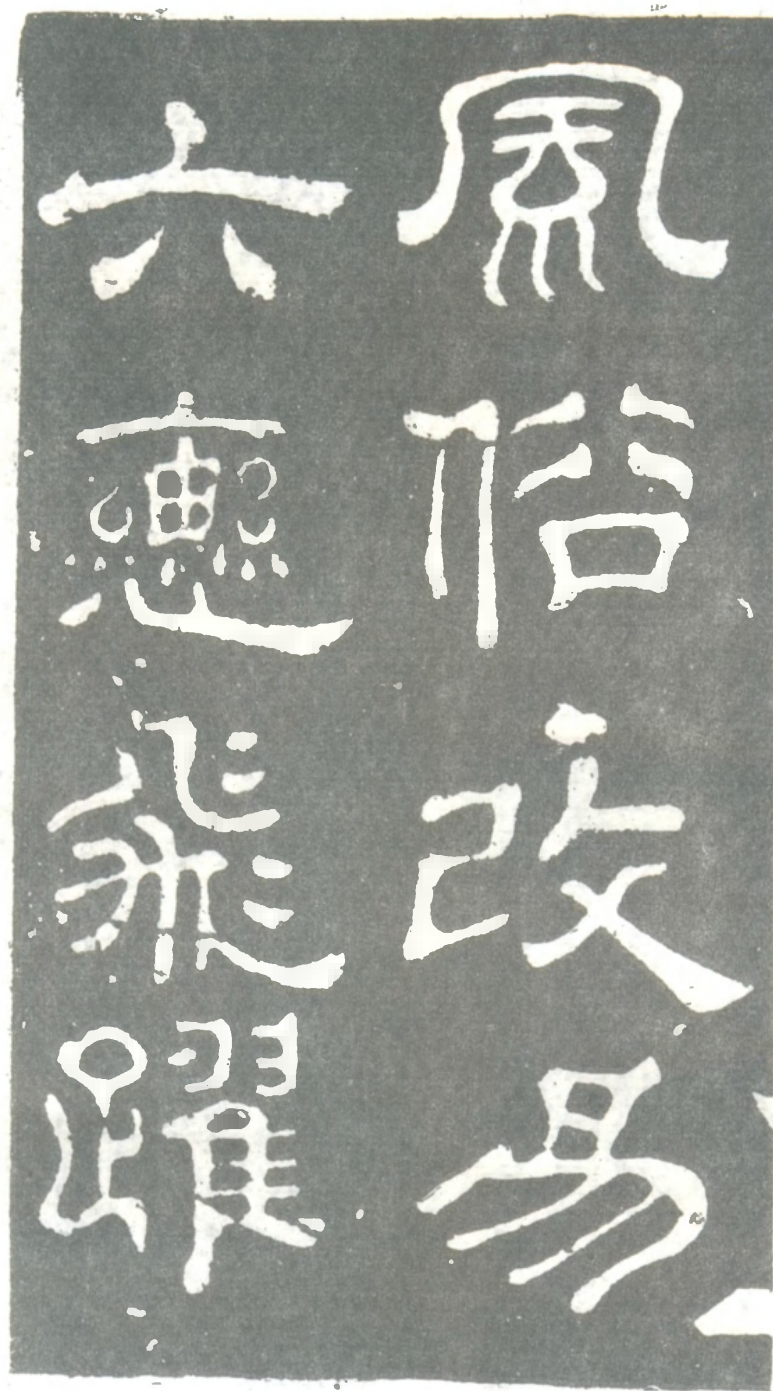 風俗改易
六轡飛躍